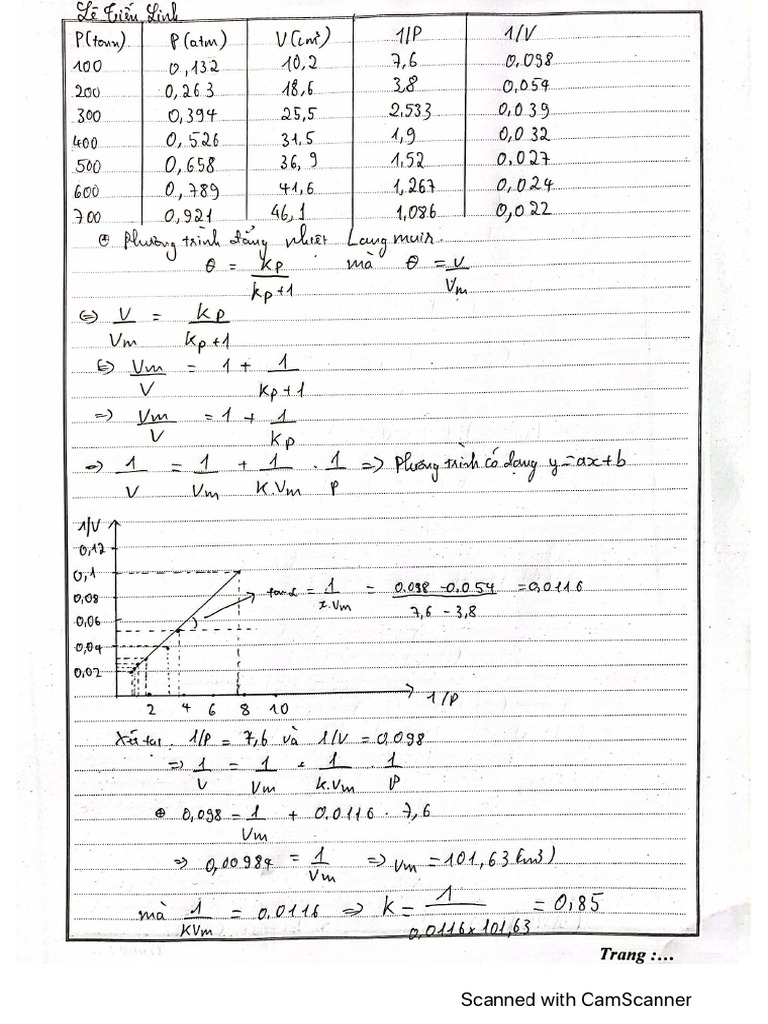 Lê Tiến Linh
P(tonn) P(atm) V(cm³) 1/P 1/V
100 0,132 10,2 7,6 0,098
200 0,263 18,6 3,8 0,054
300 0,394 25,5 2,533 0,039
400 0,526 31,5 1,9 0,032
500 0,658 36,9 1,52 0.027
600 0,789 41,6 1,267 0,024
700 0,921 46,1 1,086 0,022
⊕ Phương trình đẳng nhiệt Langmuir.
θ = kp / kp+1 mà θ = v / Vm
⇔ V / Vm = kp / kp+1
⇔ Vm / V = 1 + 1 / kp+1
⇒ Vm / V = 1 + 1 / kp
⇒ 1 / V = 1 / Vm + 1 / K.Vm . 1 / P ⇒ Phương trình có dạng y=ax+b
1/V
0,12
0,1
0,08
0,06
0,04
0,02
tanα = 1 / k.Vm = 0.098 - 0.054 / 7,6 - 3,8 = 0,0116
2 4 6 8 10 1/P
Xét tại: 1/P = 7,6 và 1/V = 0,098
⇒ 1 / V = 1 / Vm + 1 / k.Vm . 1 / P
⊕ 0,098 = 1 / Vm + 0.0116 . 7,6
⇒ 0,00984 = 1 / Vm ⇒ Vm = 101,63 (cm3)
mà 1 / KVm = 0.0116 ⇒ K = 1 / 0,0116x101,63 = 0,85
Trang :...
Scanned with CamScanner